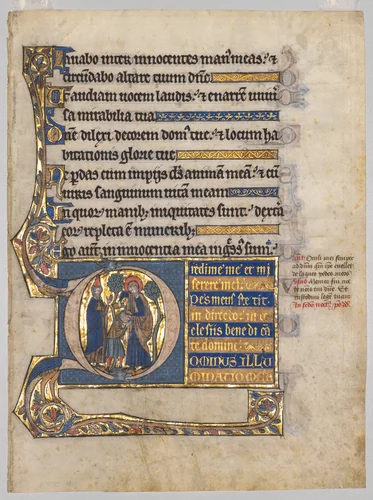 Lavabo inter innocentes manꝰ meas: &
circundabo altare tuum dñe
Ut audiam vocem laudis: & enarrē uniū
sa mirabilia tua
Dñe dilexi decorem domꝰ tue: & locum ha
bitationis glorie tue
Ne perdas cum impijs dš animam meā: & cū
viris sanguinum vitā meam
In quoꝝ manibꝫ iniquitates sunt: dextera
eoꝝ repleta ē muneribꝫ
Ego aut̄ in innocentia mea ingr̄ssꝰ sum:
redime me & mi
serere mei
Pes meus ste tit
in directo: in ec
clesiis bene di cā
te domine
DOMINUS ILLU
MINATIO MEA